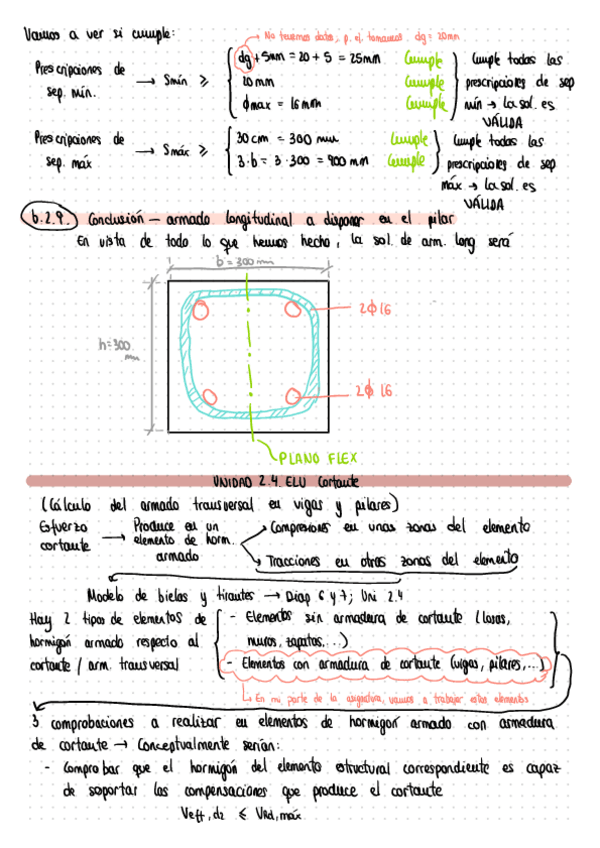 Vamos a ver si cumple:
No tenemos dato, p. ej. tomamos dg = 20mm
Prescripciones de sep. mín. → Smín ≥
dg + 5mm = 20 + 5 = 25mm Cumple
20mm Cumple
ϕmax = 16mm Cumple
Cumple todas las
prescripciones de sep
mín → la sol. es
VÁLIDA
Prescripciones de sep. máx → Smáx ≥
30cm = 300 mm Cumple
3·b = 3·300 = 900 mm Cumple
Cumple todas las
prescripciones de sep
máx → la sol. es
VÁLIDA
b.2.9. Conclusión – armado longitudinal a disponer en el pilar
En vista de todo lo que hemos hecho, la sol. de arm. long será
b = 300 mm
h = 300 mm
2ϕ16
2ϕ16
PLANO FLEX
UNIDAD 2.4. ELU Cortante
(Cálculo del armado transversal en vigas y pilares)
Esfuerzo cortante → Produce en un elemento de horm. armado
Compresiones en unas zonas del elemento
Tracciones en otras zonas del elemento
Modelo de bielas y tirantes → Diap 6 y 7; Uni 2.4
Hay 2 tipos de elementos de
hormigón armado respecto al
cortante / arm. transversal
- Elementos sin armadura de cortante (losas,
muros, zapatas,...)
- Elementos con armadura de cortante (vigas, pilares,...)
En mi parte de la asignatura, vamos a trabajar estos elementos
3 comprobaciones a realizar en elementos de hormigón armado con armadura
de cortante → Conceptualmente serían:
- Comprobar que el hormigón del elemento estructural correspondiente es capaz
de soportar las compensaciones que produce el cortante
Veff,d2 ≤ VRd,máx